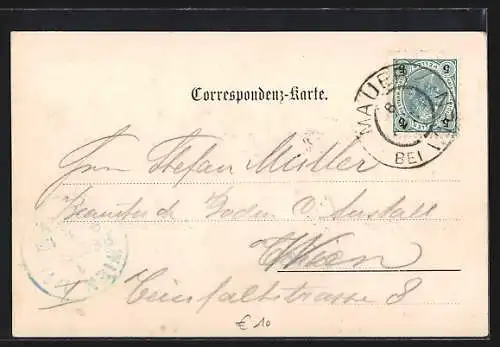 Correspondenz-Karte.
5 5
MAUER
BEI
Herrn Stefan Müller
Beamter d. Boden C. Anstalt
Wien
WIEN
I Teinfaltstrasse 8
€ 10